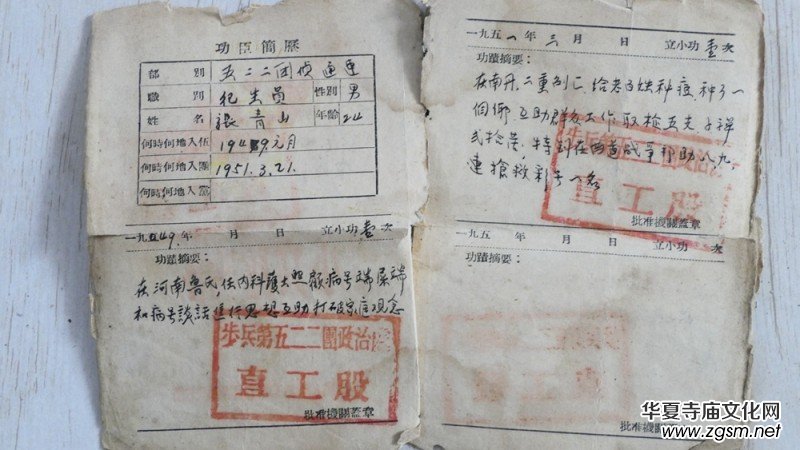 功臣簡歷
部 別 五二二团侦通連
職 別 纪生員 性別 男
姓 名 張青山 年齡 24
何時何地入伍 1949元月
何時何地入團 1951.3.21.
何時何地入黨
一九49年 月 日 立小功壹次
功蹟摘要：
在河南鲁氏，任内科護士照顾病号端屎端
和病号談話進行思想互助打破家庭观念
步兵第五二二團政治處
直工股
批准機關蓋章
一九五一年三月 日 立小功壹次
功蹟摘要：
在南丹
給老百姓种痘 种了一
個鄉，互助群众工作 取枪五支子弹
特别在两道战争帮助八九
連搶救彩号一名
步兵第五
直工
批准機關蓋章
一九五 年 月 日 立小功 次
功蹟摘要：
批准機關蓋
华夏寺庙文化网
www.zgsm.net